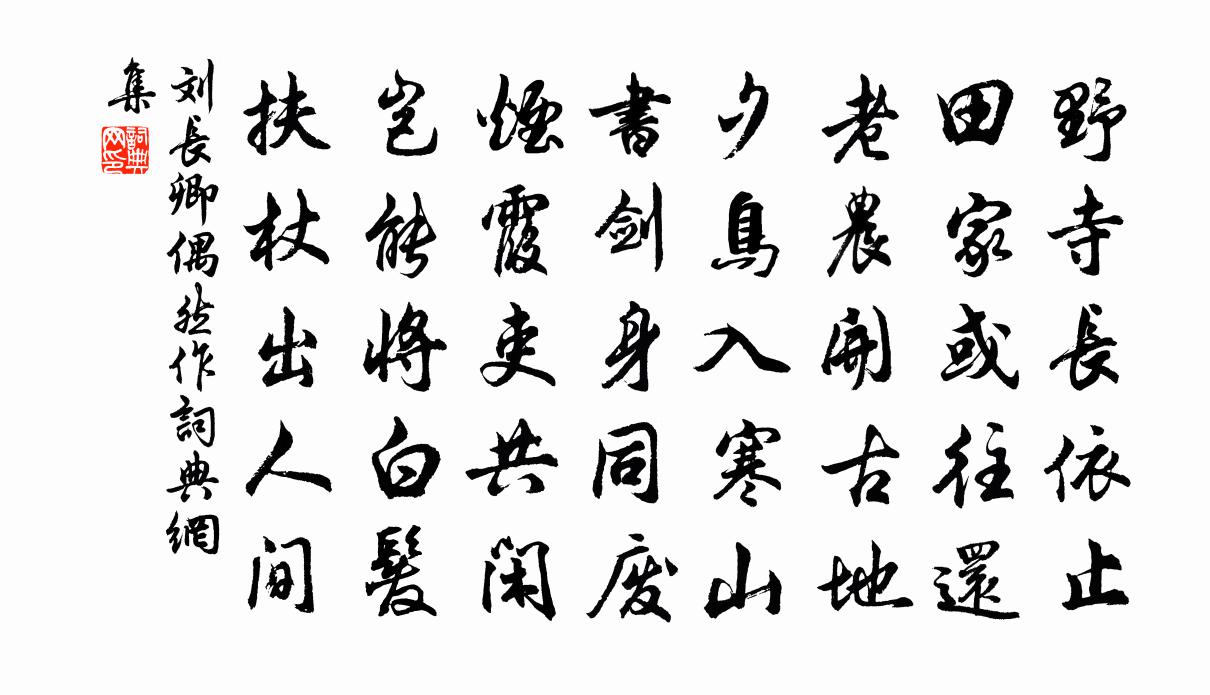 野寺長依止
田家或往還
老農開古地
夕鳥入寒山
書剑身同废
煙霞吏共閑
岂能將白髮
扶杖出人间
刘長卿偶然作詞典網
集
詞典网印